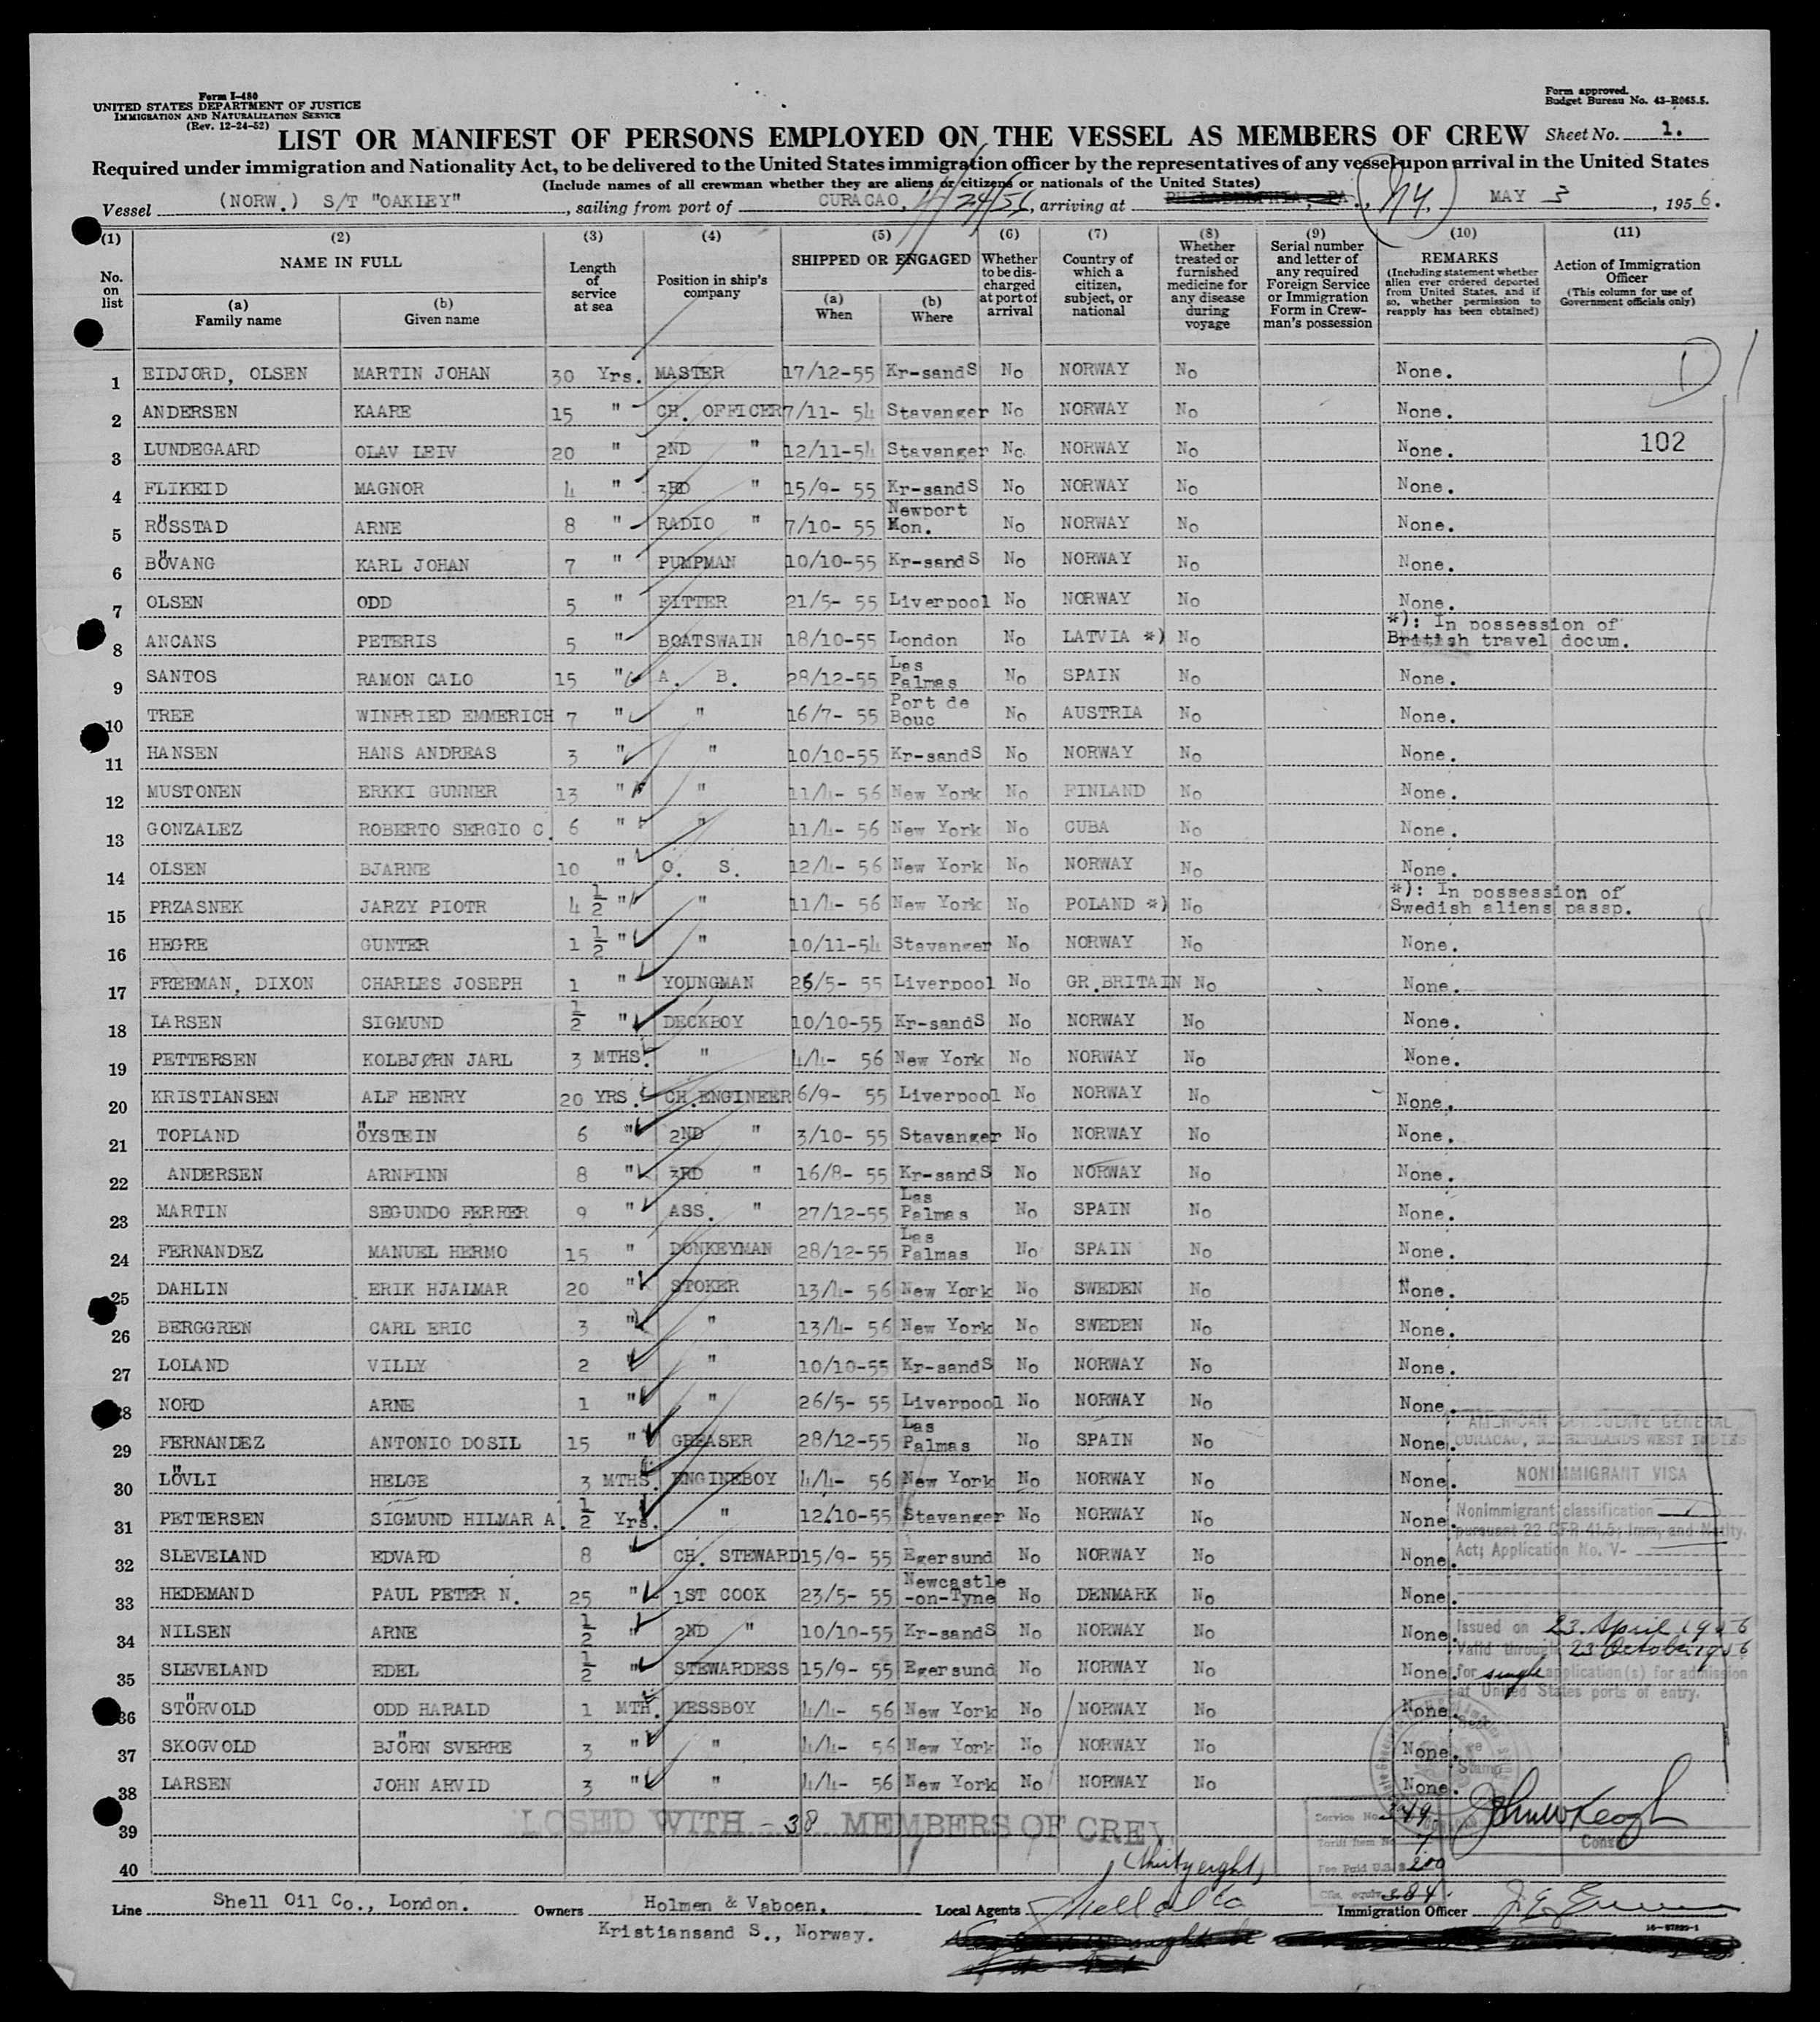 Form I-480
UNITED STATES DEPARTMENT OF JUSTICE
IMMIGRATION AND NATURALIZATION SERVICE
(Rev. 12-24-52)
Form approved.
Budget Bureau No. 43-R065.5.
LIST OR MANIFEST OF PERSONS EMPLOYED ON THE VESSEL AS MEMBERS OF CREW Sheet No. 1.
Required under immigration and Nationality Act, to be delivered to the United States immigration officer by the representatives of any vessel upon arrival in the United States
(Include names of all crewman whether they are aliens or citizens or nationals of the United States)
Vessel (NORW.) S/T "OAKLEY", sailing from port of CURACAO, 4/24/56, arriving at PHILADELPHIA, PA., N.Y. MAY 3, 1956.
(1) No. on list
(2) NAME IN FULL
(a) Family name
(b) Given name
(3) Length of service at sea
(4) Position in ship's company
(5) SHIPPED OR ENGAGED
(a) When
(b) Where
(6) Whether to be discharged at port of arrival
(7) Country of which a citizen, subject, or national
(8) Whether treated or furnished medicine for any disease during voyage
(9) Serial number and letter of any required Foreign Service or Immigration Form in Crewman's possession
(10) REMARKS (Including statement whether alien ever ordered deported from United States, and if so, whether permission to reapply has been obtained)
(11) Action of Immigration Officer (This column for use of Government officials only)
1 EIDJORD, OLSEN MARTIN JOHAN 30 Yrs. MASTER 17/12-55 Kr-sandS No NORWAY No None.
2 ANDERSEN KAARE 15 " CH. OFFICER 7/11- 54 Stavanger No NORWAY No None.
3 LUNDEGAARD OLAV LEIV 20 " 2ND " 12/11-54 Stavanger No NORWAY No None. 102
4 FLIKEID MAGNOR 4 " 3RD " 15/9- 55 Kr-sandS No NORWAY No None.
5 RÖSSTAD ARNE 8 " RADIO " 7/10- 55 Newport Mon. No NORWAY No None.
6 BÖVANG KARL JOHAN 7 " PUMPMAN 10/10-55 Kr-sandS No NORWAY No None.
7 OLSEN ODD 5 " FITTER 21/5- 55 Liverpool No NORWAY No None.
8 ANCANS PETERIS 5 " BOATSWAIN 18/10-55 London No LATVIA *) No *): In possession of British travel docum.
9 SANTOS RAMON CALO 15 " A. B. 28/12-55 Las Palmas No SPAIN No None.
10 TREE WINFRIED EMMERICH 7 " " 16/7- 55 Port de Bouc No AUSTRIA No None.
11 HANSEN HANS ANDREAS 3 " " 10/10-55 Kr-sandS No NORWAY No None.
12 MUSTONEN ERKKI GUNNER 13 " " 11/4- 56 New York No FINLAND No None.
13 GONZALEZ ROBERTO SERGIO C. 6 " " 11/4- 56 New York No CUBA No None.
14 OLSEN BJARNE 10 " O. S. 12/4- 56 New York No NORWAY No None.
15 PRZASNEK JARZY PIOTR 4 1/2 " " 11/4- 56 New York No POLAND *) No *): In possession of Swedish aliens passp.
16 HEGRE GUNTER 1 1/2 " " 10/11-54 Stavanger No NORWAY No None.
17 FREEMAN, DIXON CHARLES JOSEPH 1 " YOUNGMAN 26/5- 55 Liverpool No GR.BRITAIN No None.
18 LARSEN SIGMUND 1/2 " DECKBOY 10/10-55 Kr-sandS No NORWAY No None.
19 PETTERSEN KOLBJØRN JARL 3 MTHS. " 4/4- 56 New York No NORWAY No None.
20 KRISTIANSEN ALF HENRY 20 YRS. CH.ENGINEER 6/9- 55 Liverpool No NORWAY No None.
21 TOPLAND ÖYSTEIN 6 " 2ND " 3/10- 55 Stavanger No NORWAY No None.
22 ANDERSEN ARNFINN 8 " 3RD " 16/8- 55 Kr-sandS No NORWAY No None.
23 MARTIN SEGUNDO FERRER 9 " ASS. " 27/12-55 Las Palmas No SPAIN No None.
24 FERNANDEZ MANUEL HERMO 15 " DONKEYMAN 28/12-55 Las Palmas No SPAIN No None.
25 DAHLIN ERIK HJALMAR 20 " STOKER 13/4- 56 New York No SWEDEN No None.
26 BERGGREN CARL ERIC 3 " " 13/4- 56 New York No SWEDEN No None.
27 LOLAND VILLY 2 " " 10/10-55 Kr-sandS No NORWAY No None.
28 NORD ARNE 1 " " 26/5- 55 Liverpool No NORWAY No None.
29 FERNANDEZ ANTONIO DOSIL 15 " GREASER 28/12-55 Las Palmas No SPAIN No None.
30 LÖVLI HELGE 3 MTHS. ENGINEBOY 4/4- 56 New York No NORWAY No None.
31 PETTERSEN SIGMUND HILMAR A. 1/2 Yrs. " 12/10-55 Stavanger No NORWAY No None.
32 SLEVELAND EDVARD 8 " CH. STEWARD 15/9- 55 Egersund No NORWAY No None.
33 HEDEMAND PAUL PETER N. 25 " 1ST COOK 23/5- 55 Newcastle -on-Tyne No DENMARK No None.
34 NILSEN ARNE 1/2 " 2ND " 10/10-55 Kr-sandS No NORWAY No None.
35 SLEVELAND EDEL 1/2 " STEWARDESS 15/9- 55 Egersund No NORWAY No None.
36 STÖRVOLD ODD HARALD 1 MTH. MESSBOY 4/4- 56 New York No NORWAY No None.
37 SKOGVOLD BJÖRN SVERRE 3 " " 4/4- 56 New York No NORWAY No None.
38 LARSEN JOHN ARVID 3 " " 4/4- 56 New York No NORWAY No None.
39
40
AMERICAN CONSULATE GENERAL
CURACAO, NETHERLANDS WEST INDIES
NONIMMIGRANT VISA
Nonimmigrant classification
pursuant 22 CFR 41.5; Imm. and Natlty.
Act; Application No. V-
Issued on 23 April 1956
Valid through 23 October 1956
for single application(s) for admission
at United States ports of entry.
Fee Stamp
John W Keogh
Consul
LOSED WITH - 38 MEMBERS OF CREW
(thirtyeight)
Service No. 349
Tariff Item No.
Fee Paid U.S. $ 200
384
Line Shell Oil Co., London. Owners Holmen & Vaboen, Local Agents Shell Oil Co Immigration Officer
Kristiansand S., Norway.
16-67899-1